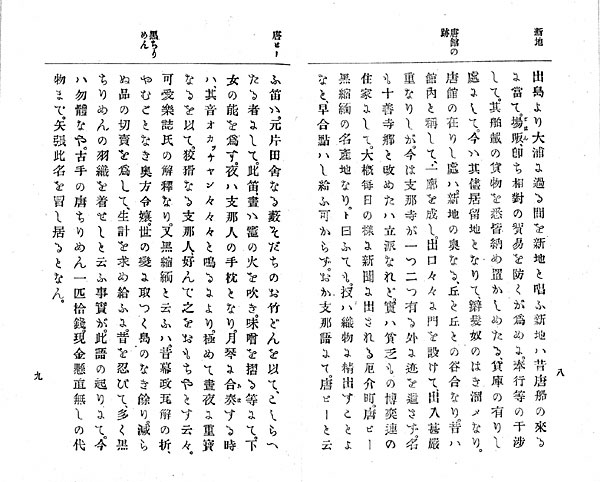 新地
出島より大浦に過る間を新地と唱ふ新地ハ昔唐船の來る
に當て、場販卽ち相對の貿易を防くが爲めに、奉行等の干渉
して、其舶載の貨物を悉皆納め置かしめたる貨庫の有りし
處にして、今ハ其儘居留地となりて、辮髮奴のはき溜メなり。
唐館の跡
唐館の在りし處ハ、新地の奥なる、丘と丘との谷合なり、昔ハ
館内と稱して、一廓を成し、出口々々に門を設けて、出入甚嚴
重なりしが、今は支那寺が一つ二つ有る外に迹を遺さず、名
も十善寺郷と改めたハ立派なれど、實ハ貧乏もの博奕連の
住家にして、大概每日の樣に新聞に出される厄介町、唐ピー
黒縮緬の名産地なり。ト曰ふても、ハ織物に精出すことよ
なと、早合點ハし給ふ可からず。おか支那語にて、唐ピーと云
八
唐ピー
ふ笛ハ、元片田舍なる藪そだちのお竹どんを以て、こしらへ
たる者にして、此笛、晝ハ竈の火を吹き、味噌を摺る等にて、下
女の能を爲す、夜ハ支那人の手枕となり、月琴に合奏する時
ハ、其音オカッチャン々々々と鳴るにより、極めて晝夜に重寶
なるを以て、狡猾なる支那人、好んで之をおもちやとす云々。
黒ちりめん
可愛樂誌氏の解釋なり、又黒縮緬と云ふハ、昔幕政瓦解の折、
やむごとなき奥方令孃、世の變に取つく島のなき餘り、減ら
ぬ品の切賣を爲して、生計を求め給ふに、昔を忍びて、多く黒
ちりめんの羽織を着せしと云ふ事實が、此語の起りにて、今
ハ勿體なや、古手の唐ちりめん一匹拾錢、現金懸直無しの代
物まで、矢張此名を冒し居るとなん。
九